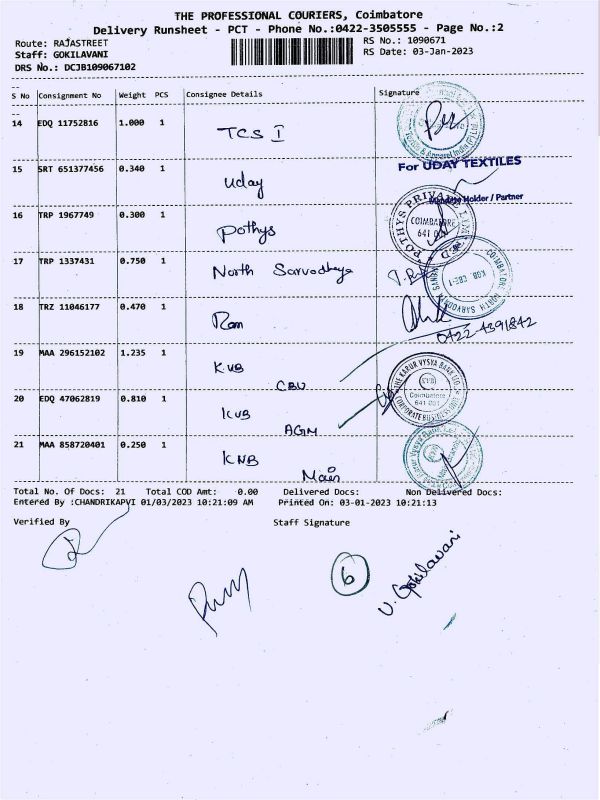 THE PROFESSIONAL COURIERS, Coimbatore
Delivery Runsheet - PCT - Phone No.:0422-3505555 - Page No.:2
Route: RAJASTREET RS No.: 1090671
Staff: GOKILAVANI RS Date: 03-Jan-2023
DRS No.: DCJB109067102
S No Consignment No Weight PCS Consignee Details Signature
14 EDQ 11752816 1.000 1 TCS I
15 SRT 651377456 0.340 1 Uday For UDAY TEXTILES
Holder / Partner
16 TRP 1967749 0.300 1 Pothys POTHYS PRIVATE LIMITED COIMBATORE 641 001
17 TRP 1337431 0.750 1 North Sarvodhaya
18 TRZ 11046177 0.470 1 Ram
0422-4391842
19 MAA 296152102 1.235 1 KVB CBU THE KARUR VYSYA BANK LTD. Coimbatore 641 001 CORPORATE BUSINESS UNIT
20 EDQ 47062819 0.810 1 KVB AGM
21 MAA 858720401 0.250 1 KNB Main
Total No. Of Docs: 21 Total COD Amt: 0.00 Delivered Docs: Non Delivered Docs:
Entered By :CHANDRIKAPVI 01/03/2023 10:21:09 AM Printed On: 03-01-2023 10:21:13
Verified By Staff Signature
6
V. Gokilavani